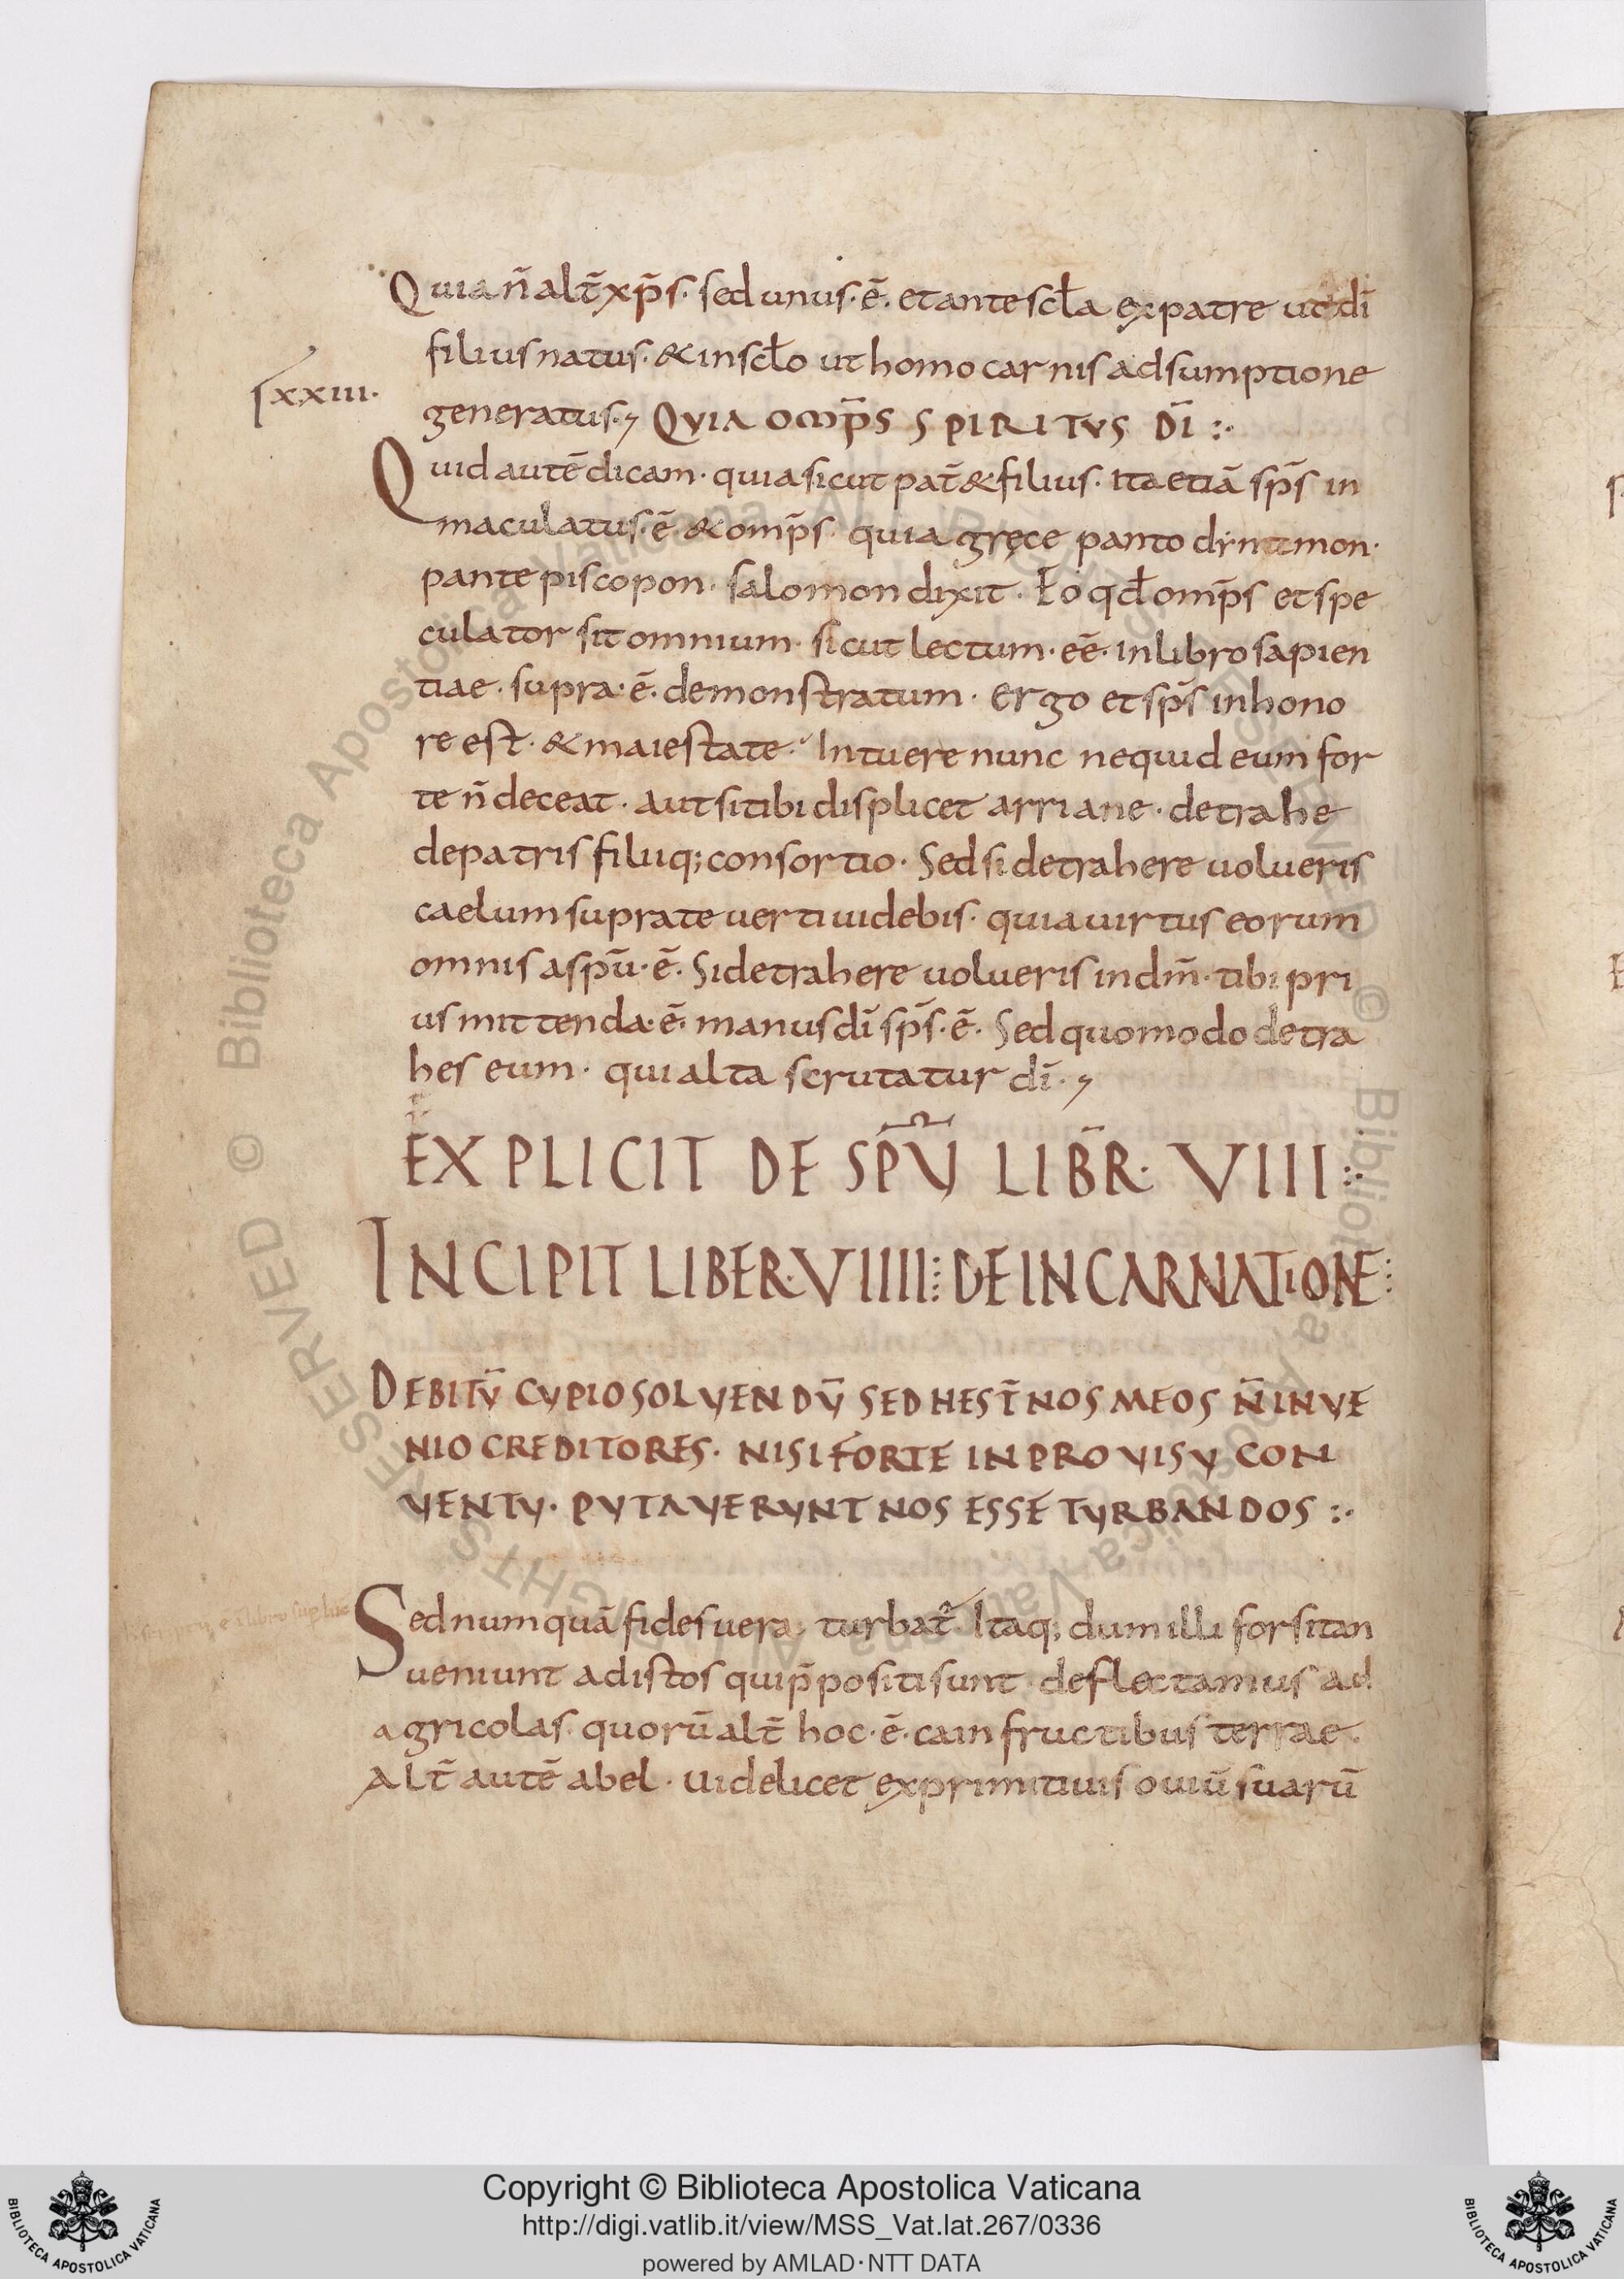 Quia n̄ alt̄ xp̄s· sed unus·ē· et ante scl̄a ex patre ut dī
filius natus· & in scl̄o ut homo carnis adsumptione
lxxiii·
generatus·⁊ QVIA OMP̄S SPIRITVS DĪ :·
Quid autē dicam· quia sicut pat̄ & filius· ita etiā sp̄s in
maculatus·ē· & omp̄s· quia gręce panto dynamon·
pantepiscopon· salomon dixit· Eo qd̄ omp̄s et spe
culator sit omnium· sicut lectum·eē· in libro sapien
tiae· supra·ē· demonstratum· ergo et sp̄s in hono
re est· & maiestate· Intuere nunc nequid eum for
te n̄ deceat· aut si tibi displicet arriane· detrahe
de patris filiiq; consortio· Sed si detrahere uolueris
caelum supra te uerti uidebis· quia uirtus eorum
omnis a spū·ē· Si detrahere uolueris in dm̄· tibi pri
us mittenda·ē· manus dī sp̄s·ē· Sed quomodo detra
hes eum· qui alta scrutatur dī·⁊
EXPLICIT DE SP̄V LIB̄R· VIII :·
INCIPIT LIBER·VIIII: DE INCARNATIONE:
DEBITV̄ CVPIO SOLVENDV̄ SED HEST̄NOS MEOS N̄ INVE
NIO CREDITORES· NISI FORTE INPROVISV CON
VENTV· PVTAVERVNT NOS ESSE TVRBANDOS :·
Sed numquā fides uera turbat̄· Itaq; dum illi forsitan
ueniunt ad istos qui p̄positi sunt deflectamus ad
agricolas· quorū alt̄ hoc·ē· cain fructibus terrae·
Alt̄ autē abel· uidelicet ex primitiuis ouiū suarū
Copyright © Biblioteca Apostolica Vaticana
http://digi.vatlib.it/view/MSS_Vat.lat.267/0336
powered by AMLAD·NTT DATA
BIBLIOTECA APOSTOLICA VATICANA
BIBLIOTECA APOSTOLICA VATICANA